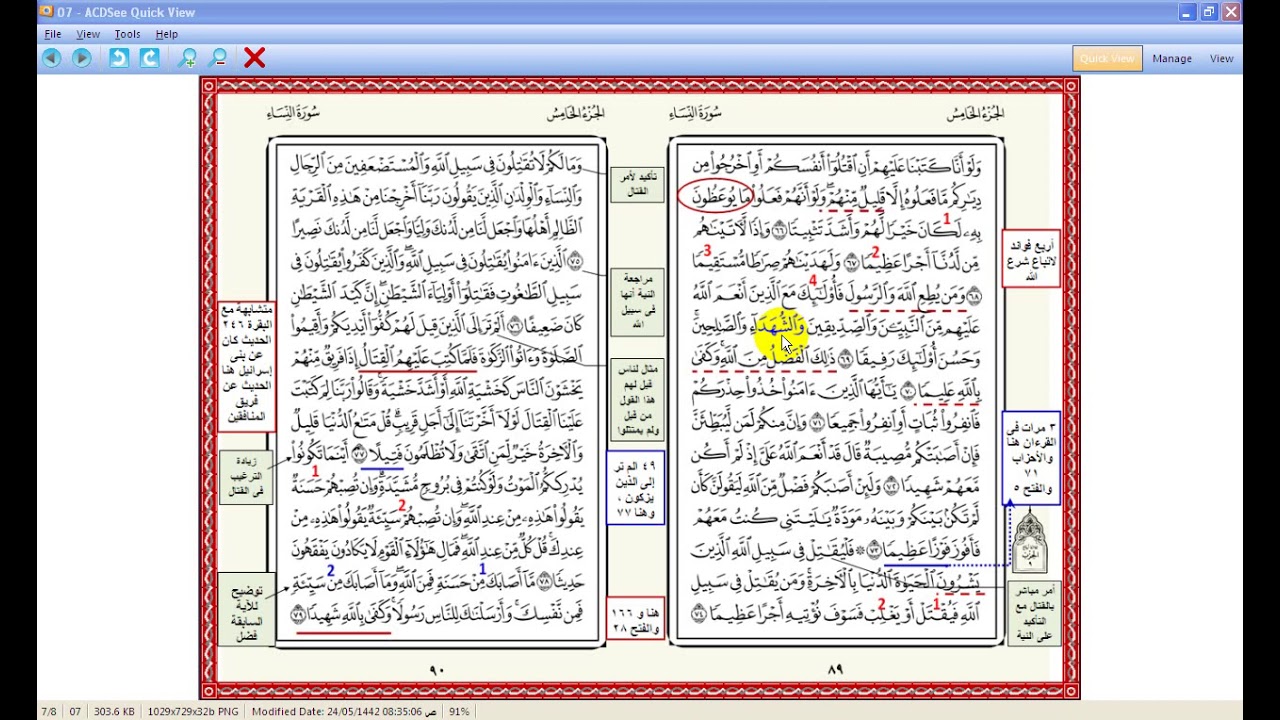 07 - ACDSee Quick View
File View Tools Help
Quick View Manage View
الجُزْءُ الخَامِسُ سُورَةُ النِّسَاءِ
وَلَوْ أَنَّا كَتَبْنَا عَلَيْهِمْ أَنِ ٱقْتُلُوٓا۟ أَنفُسَكُمْ أَوِ ٱخْرُجُوا۟ مِن
دِيَـٰرِكُم مَّا فَعَلُوهُ إِلَّا قَلِيلٌ مِّنْهُمْ وَلَوْ أَنَّهُمْ فَعَلُوا۟ مَا يُوعَظُونَ
بِهِۦ لَكَانَ خَيْرًا لَّهُمْ وَأَشَدَّ تَثْبِيتًا ٦٦ وَإِذًا لَّـَٔاتَيْنَـٰهُم
مِّن لَّدُنَّآ أَجْرًا عَظِيمًا ٦٧ وَلَهَدَيْنَـٰهُمْ صِرَٰطًا مُّسْتَقِيمًا
٦٨ وَمَن يُطِعِ ٱللَّهَ وَٱلرَّسُولَ فَأُو۟لَـٰٓئِكَ مَعَ ٱلَّذِينَ أَنْعَمَ ٱللَّهُ
عَلَيْهِم مِّنَ ٱلنَّبِيِّـۧنَ وَٱلصِّدِّيقِينَ وَٱلشُّهَدَآءِ وَٱلصَّـٰلِحِينَ
وَحَسُنَ أُو۟لَـٰٓئِكَ رَفِيقًا ٦٩ ذَٰلِكَ ٱلْفَضْلُ مِنَ ٱللَّهِ وَكَفَىٰ
بِٱللَّهِ عَلِيمًا ٧٠ يَـٰٓأَيُّهَا ٱلَّذِينَ ءَامَنُوا۟ خُذُوا۟ حِذْرَكُمْ
فَٱنفِرُوا۟ ثُبَاتٍ أَوِ ٱنفِرُوا۟ جَمِيعًا ٧١ وَإِنَّ مِنكُمْ لَمَن لَّيُبَطِّئَنَّ
فَإِنْ أَصَـٰبَتْكُم مُّصِيبَةٌ قَالَ قَدْ أَنْعَمَ ٱللَّهُ عَلَىَّ إِذْ لَمْ أَكُن
مَّعَهُمْ شَهِيدًا ٧٢ وَلَئِنْ أَصَـٰبَكُمْ فَضْلٌ مِّنَ ٱللَّهِ لَيَقُولَنَّ كَأَن
لَّمْ تَكُنۢ بَيْنَكُمْ وَبَيْنَهُۥ مَوَدَّةٌ يَـٰلَيْتَنِى كُنتُ مَعَهُمْ
فَأَفُوزَ فَوْزًا عَظِيمًا ٧٣ ۞ فَلْيُقَـٰتِلْ فِى سَبِيلِ ٱللَّهِ ٱلَّذِينَ
يَشْرُونَ ٱلْحَيَوٰةَ ٱلدُّنْيَا بِٱلْـَٔاخِرَةِ وَمَن يُقَـٰتِلْ فِى سَبِيلِ
ٱللَّهِ فَيُقْتَلْ أَوْ يَغْلِبْ فَسَوْفَ نُؤْتِيهِ أَجْرًا عَظِيمًا ٧٤
٨٩
1
2
3
4
1 2
أربع فوائد
لاتباع شرع
الله
٣ مرات فى
القرءان هنا
والأحزاب
٧١
والفتح ٥
أمر مباشر
بالقتال مع
التأكيد
على النية
الجُزْءُ الخَامِسُ سُورَةُ النِّسَاءِ
وَمَا لَكُمْ لَا تُقَـٰتِلُونَ فِى سَبِيلِ ٱللَّهِ وَٱلْمُسْتَضْعَفِينَ مِنَ ٱلرِّجَالِ
وَٱلنِّسَآءِ وَٱلْوِلْدَٰنِ ٱلَّذِينَ يَقُولُونَ رَبَّنَآ أَخْرِجْنَا مِنْ هَـٰذِهِ ٱلْقَرْيَةِ
ٱلظَّالِمِ أَهْلُهَا وَٱجْعَل لَّنَا مِن لَّدُنكَ وَلِيًّا وَٱجْعَل لَّنَا مِن لَّدُنكَ نَصِيرًا
٧٥ ٱلَّذِينَ ءَامَنُوا۟ يُقَـٰتِلُونَ فِى سَبِيلِ ٱللَّهِ وَٱلَّذِينَ كَفَرُوا۟ يُقَـٰتِلُونَ فِى
سَبِيلِ ٱلطَّـٰغُوتِ فَقَـٰتِلُوٓا۟ أَوْلِيَآءَ ٱلشَّيْطَـٰنِ إِنَّ كَيْدَ ٱلشَّيْطَـٰنِ
كَانَ ضَعِيفًا ٧٦ أَلَمْ تَرَ إِلَى ٱلَّذِينَ قِيلَ لَهُمْ كُفُّوٓا۟ أَيْدِيَكُمْ وَأَقِيمُوا۟
ٱلصَّلَوٰةَ وَءَاتُوا۟ ٱلزَّكَوٰةَ فَلَمَّا كُتِبَ عَلَيْهِمُ ٱلْقِتَالُ إِذَا فَرِيقٌ مِّنْهُمْ
يَخْشَوْنَ ٱلنَّاسَ كَخَشْيَةِ ٱللَّهِ أَوْ أَشَدَّ خَشْيَةً وَقَالُوا۟ رَبَّنَا لِمَ كَتَبْتَ
عَلَيْنَا ٱلْقِتَالَ لَوْلَآ أَخَّرْتَنَآ إِلَىٰٓ أَجَلٍ قَرِيبٍ قُلْ مَتَـٰعُ ٱلدُّنْيَا قَلِيلٌ
وَٱلْـَٔاخِرَةُ خَيْرٌ لِّمَنِ ٱتَّقَىٰ وَلَا تُظْلَمُونَ فَتِيلًا ٧٧ أَيْنَمَا تَكُونُوا۟
يُدْرِككُّمُ ٱلْمَوْتُ وَلَوْ كُنتُمْ فِى بُرُوجٍ مُّشَيَّدَةٍ وَإِن تُصِبْهُمْ حَسَنَةٌ
يَقُولُوا۟ هَـٰذِهِۦ مِنْ عِندِ ٱللَّهِ وَإِن تُصِبْهُمْ سَيِّئَةٌ يَقُولُوا۟ هَـٰذِهِۦ مِنْ
عِندِكَ قُلْ كُلٌّ مِّنْ عِندِ ٱللَّهِ فَمَالِ هَـٰٓؤُلَآءِ ٱلْقَوْمِ لَا يَكَادُونَ يَفْقَهُونَ
حَدِيثًا ٧٨ مَّآ أَصَابَكَ مِنْ حَسَنَةٍ فَمِنَ ٱللَّهِ وَمَآ أَصَابَكَ مِن سَيِّئَةٍ
فَمِن نَّفْسِكَ وَأَرْسَلْنَـٰكَ لِلنَّاسِ رَسُولًا وَكَفَىٰ بِٱللَّهِ شَهِيدًا ٧٩
٩٠
1
2
1 2
تأكيد لأمر
القتال
مراجعة
النية أنها
فى سبيل
الله
مثال لناس
قيل لهم
هذا القول
من قبل
ولم يمتثلوا
٤٩ الم تر
إلى الذين
يزكون ،
وهنا ٧٧
هنا و ١٦٦
والفتح ٢٨
متشابهة مع
البقرة ٢٤٦
الحديث كان
عن بنى
إسرائيل هنا
الحديث عن
فريق
المنافقين
زيادة
الترغيب
فى القتال
توضيح
للآية
السابقة
فضل
7/8 07 303.6 KB 1029x729x32b PNG Modified Date: 24/05/1442 08:35:06 ص 91%